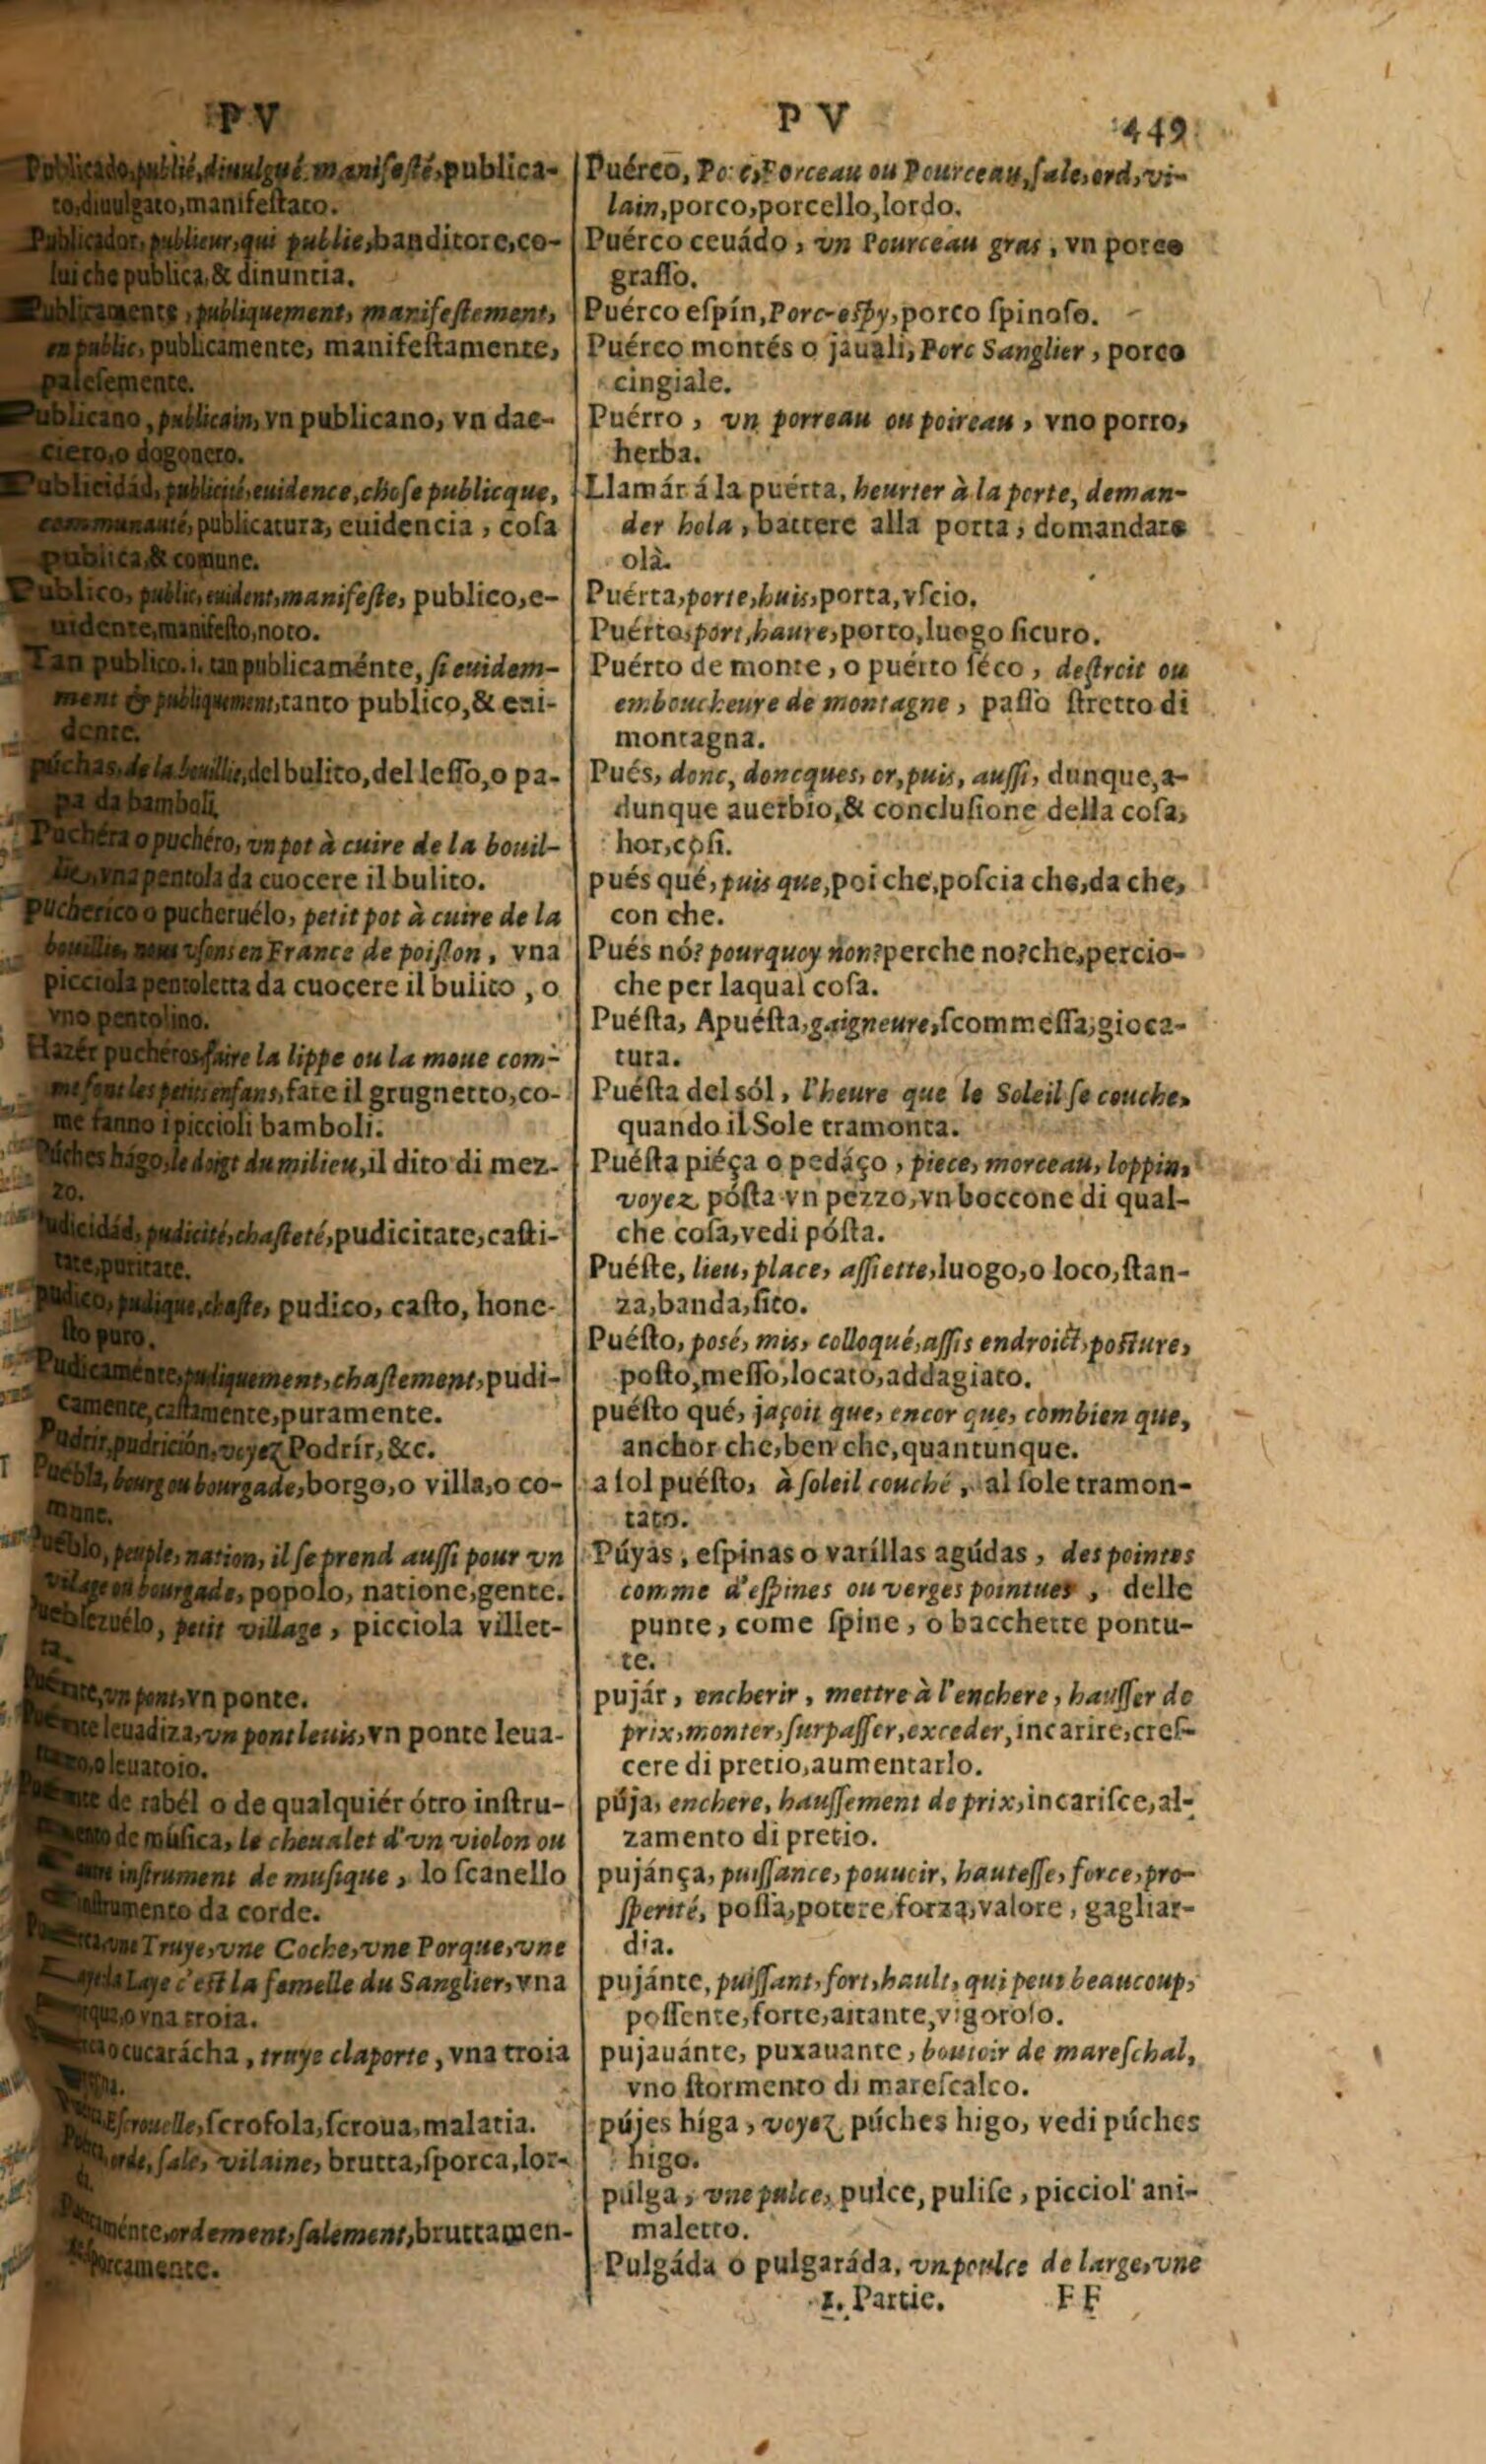 P V
Publicado, publié, diuulgué manifesté, publica-
to, diuulgato, manifestato.
Publicador, publieur, qui publie, banditore, co-
lui che publica, & dinuncia.
Publicamente, publiquement, manifestement,
en public, publicamente, manifestamente,
palesemente.
Publicano, publicain, vn publicano, vn dae-
ciero, o dogonero.
Publicidád, publicité, euidence, chose publicque,
communauté, publicatura, euidencia, cosa
publica, & comune.
Publico, public, euident, manifeste, publico, e-
uidente, manifesto, noto.
Tan publico. i. tan publicaménte, si euidem-
ment & publiquement, tanto publico, & eui-
dente.
púchas, de la bouillie, del bulito, del lesso, o pa-
pa da bamboli.
Puchéra o puchéro, vn pot à cuire de la bouil-
lie, vna pentola da cuocere il bulito.
pucherico o pucheruélo, petit pot à cuire de la
bouillie, nous vsons en France de poislon, vna
picciola pentoletta da cuocere il bulito, o
vno pentolino.
Hazér puchéros, faire la lippe ou la moue com-
me font les petits enfans, fare il grugnetto, co-
me fanno i piccioli bamboli.
Púches hígo, le doigt du milieu, il dito di mez-
zo.
Pudicidád, pudicité, chasteté, pudicitate, casti-
tate, puritate.
pudico, pudique, chaste, pudico, casto, hone-
sto puro.
Pudicaménte, pudiquement, chastement, pudi-
camente, castamente, puramente.
Pudrir, pudrición, voyez Podrír, &c.
Puébla, bourg ou bourgade, borgo, o villa, o co-
mune.
Pueblo, peuple, nation, il se prend aussi pour vn
village ou bourgade, popolo, natione, gente.
Pueblezuélo, petit village, picciola villet-
ta.
Puénte, vn pont, vn ponte.
Puénte leuadiza, vn pont leuis, vn ponte leua-
o leuatoio.
Puente de rabél o de qualquiér ótro instru-
mento de música, le cheualet d'vn violon ou
instrument de musique, lo scanello
instrumento da corde.
vne Truye, vne Coche, vne Porque, vne
Laye c'est la femelle du Sanglier, vna
o vna troia.
o cucarácha, truye claporte, vna troia
Escrouelle, scrofola, scroua, malatia.
orde, sale, vilaine, brutta, sporca, lor-
ordement, salement, bruttamen-
P V 449
Puérco, Porc, Porceau ou Pourceau, sale, ord, vi-
lain, porco, porcello, lordo.
Puérco ceuádo, vn Pourceau gras, vn porco
grasso.
Puérco espín, Porc-espy, porco spinoso.
Puérco montés o jauali, Porc Sanglier, porco
cingiale.
Puérro, vn porreau ou poireau, vno porro,
herba.
Llamár á la puérta, heurter à la porte, deman-
der hola, battere alla porta, domandare
olà.
Puérta, porte, huis, porta, vscio.
Puérto, port, haure, porto, luogo sicuro.
Puérto de monte, o puérto séco, destroit ou
emboucheure de montagne, passo stretto di
montagna.
Pués, donc, doncques, or, puis, aussi, dunque, a-
dunque auerbio, & conclusione della cosa,
hor, cosi.
pués qué, puis que, poi che, poscia che, da che,
con che.
Pués nó? pourquoy non? perche no? che, percio-
che per laqual cosa.
Puésta, Apuésta, gaigneure, scommessa, gioca-
tura.
Puésta del sól, l'heure que le Soleil se couche,
quando il Sole tramonta.
Puésta piéça o pedáço, piece, morceau, loppin,
voyez pósta vn pezzo, vn boccone di qual-
che cosa, vedi pósta.
Puéste, lieu, place, assiette, luogo, o loco, stan-
za, banda, sito.
Puésto, posé, mis, colloqué, assis endroict, posture,
posto, messo, locato, addagiato.
puésto qué, jaçoit que, encor que, combien que,
anchor che, ben che, quantunque.
a sol puésto, à soleil couché, al sole tramon-
tato.
Púyas, espinas o varíllas agúdas, des pointes
comme d'espines ou verges pointues, delle
punte, come spine, o bacchette pontu-
te.
pujár, encherir, mettre à l'enchere, hausser de
prix, monter, surpasser, exceder, incarire, cres-
cere di pretio, aumentarlo.
púja, enchere, haussement de prix, incarisce, al-
zamento di pretio.
pujánça, puissance, pouuoir, hautesse, force, pro-
sperité, possa, potere, forza, valore, gagliar-
dia.
pujánte, puissant, fort, hault, qui peut beaucoup,
possente, forte, aitante, vigoroso.
pujauánte, puxauante, boutoir de mareschal,
vno stormento di marescalco.
pújes híga, voyez púches higo, vedi púches
higo.
púlga, vne pulce, pulce, pulise, picciol' ani-
maletto.
Pulgáda o pulgaráda, vn poulce de large, vne
1. Partie. FF